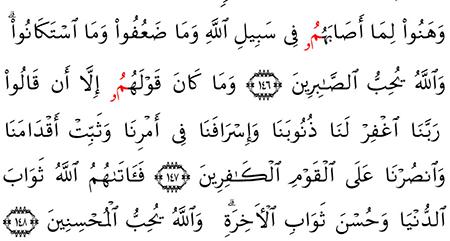 وَهَنُواْ لِمَا أَصَابَهُمُۥ فِى سَبِيلِ ٱللَّهِ وَمَا ضَعُفُواْ وَمَا ٱسْتَكَانُواْۗ
وَٱللَّهُ يُحِبُّ ٱلصَّـٰبِرِينَ ١٤٦ وَمَا كَانَ قَوْلَهُمُۥ إِلَّا أَن قَالُواْ
رَبَّنَا ٱغْفِرْ لَنَا ذُنُوبَنَا وَإِسْرَافَنَا فِى أَمْرِنَا وَثَبِّتْ أَقْدَامَنَا
وَٱنصُرْنَا عَلَى ٱلْقَوْمِ ٱلْكَـٰفِرِينَ ١٤٧ فَـَٔاتَىٰهُمُ ٱللَّهُ ثَوَابَ
ٱلدُّنْيَا وَحُسْنَ ثَوَابِ ٱلْأَخِرَةِۗ وَٱللَّهُ يُحِبُّ ٱلْمُحْسِنِينَ ١٤٨